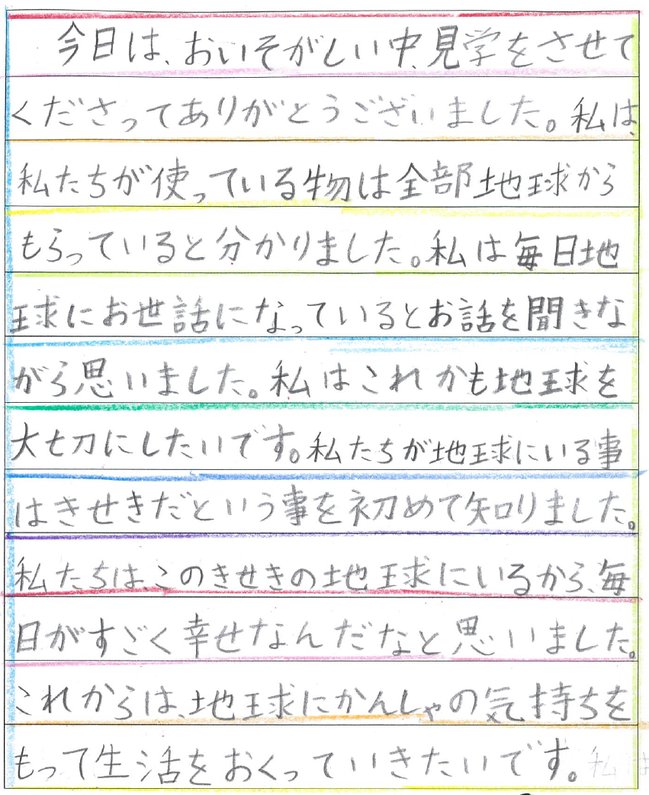 今日は、おいそがしい中、見学をさせて
くださってありがとうございました。私は、
私たちが使っている物は全部地球から
もらっていると分かりました。私は毎日地
球にお世話になっているとお話を聞きな
がら思いました。私はこれかも地球を
大切にしたいです。私たちが地球にいる事
はきせきだという事を初めて知りました。
私たちは、このきせきの地球にいるから、毎
日がすごく幸せなんだなと思いました。
これからは、地球にかんしゃの気持ちを
もって生活をおくっていきたいです。私は